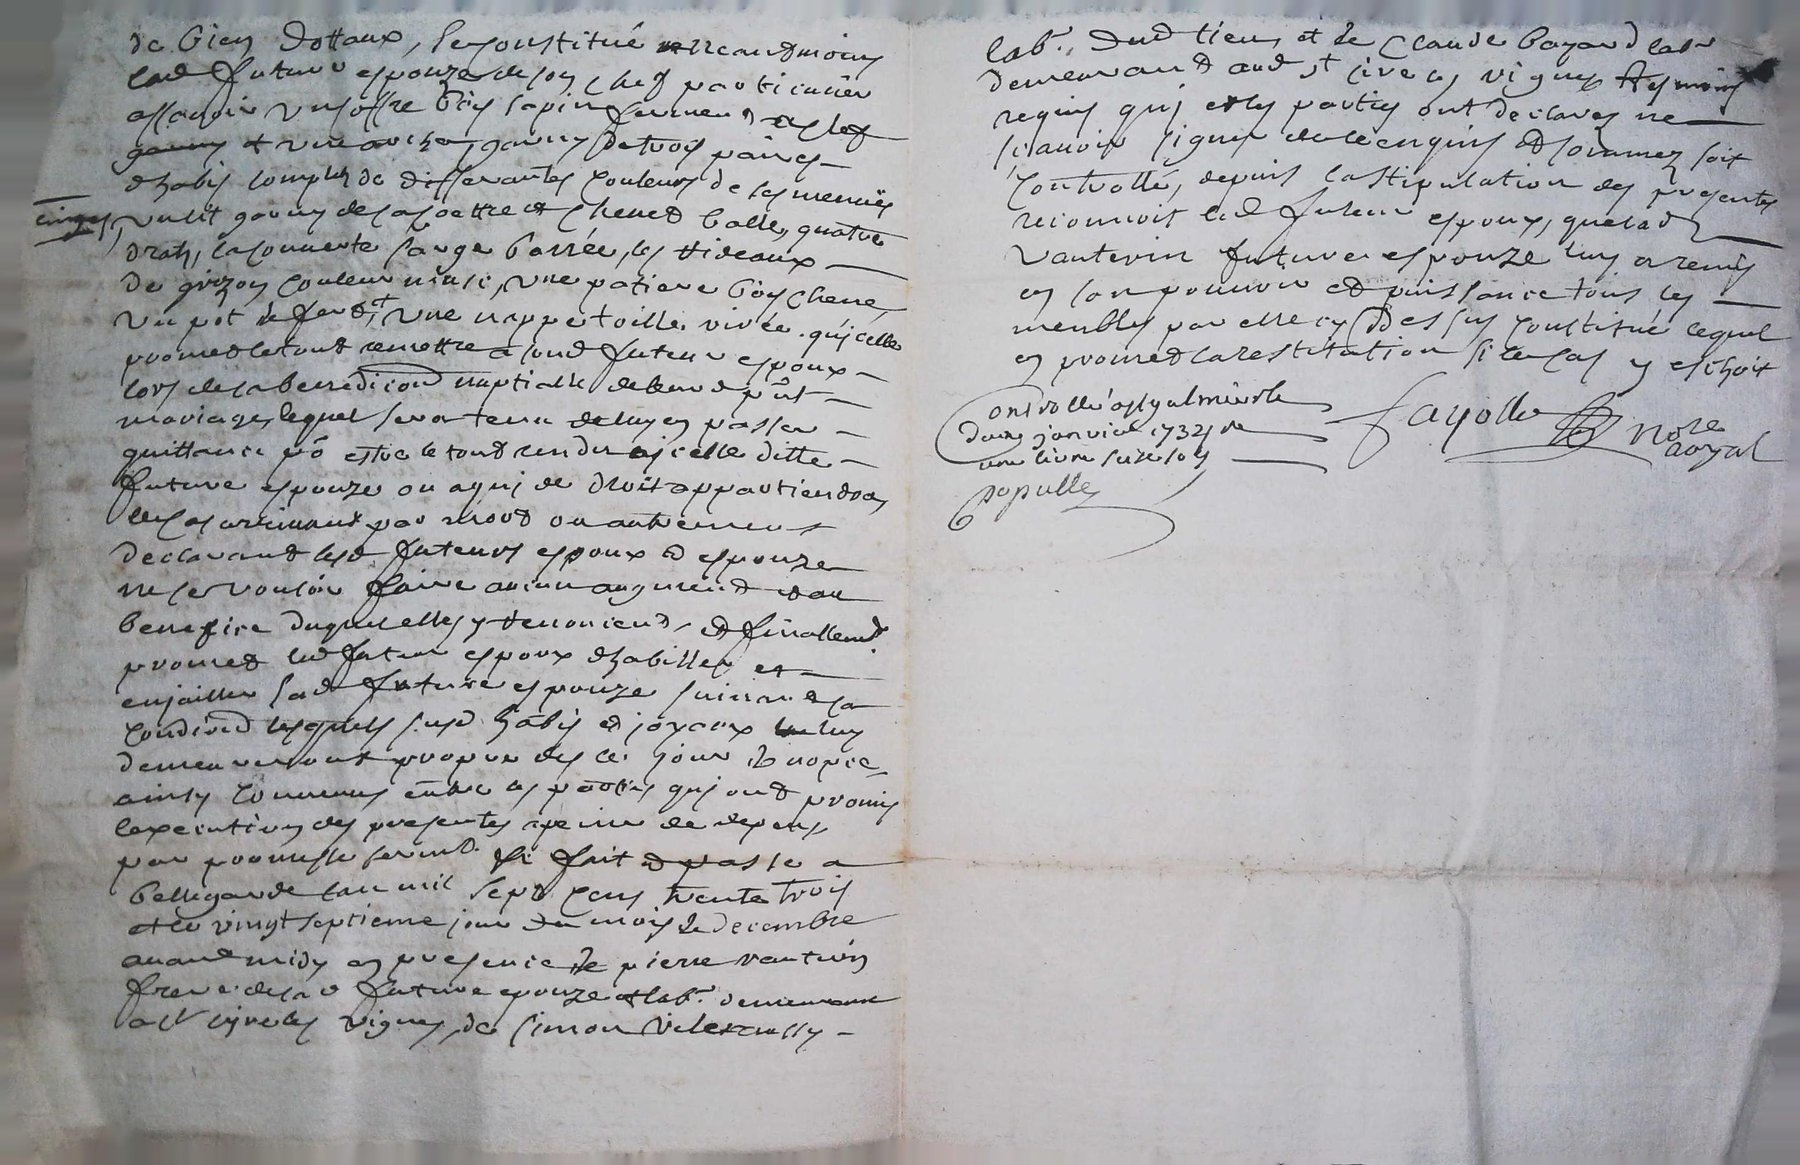 de bien dottaux, se constitué neandmoins
lad future espouze de son chef particulier
assavoir un coffre bois sapin fermend a clef
garny de trois paires
dhabis complets de differantes couleurs de ses menües
linges,
un lit garny de sa coettre et chevet balle, quatre
draps, la couverte sarge barrée, les rideaux
de grizon couleur , une patiere bois chene,
un pot de ferdt, une nappe toille rivée. qu'icelle
promed le tout remettre a sond futeur espoux
lors de la benediction nuptialle de leurd pnt
mariage, lequel sera tenu de luy en passer
quittance po estre le tout rendu a icelle ditte
future espouze ou a qui de droit appartiendra
le cas arrivant par mord ou autrement
declarand lesd futeurs espoux et espouze
ne se vouloir faire aucun augmend au
benefice duquel elles y renoncend, et finallemd.
promed led futeur espoux dhabiller et
enjailler sad future espouze suivand sa
condition lesquels susd habis et joyaux luy
demeureront propre des le jour de nopce
ainsy convenu entre les parties qui ond promis
lexecution des presentes a peine de depens
par promesse sermd. fait et passé a
bellegarde lan mil sept cens trente trois
et le vingt septieme jour du mois de decembre
avand midy en presence de pierre vanterin
frere de lad future epouze et labr. demeurant
a st cyre les vignes, de simon
labr. dud lieu, et de Claude bayard labr
demeurand aud st cire les vignes tesmoins
requis qui et les parties ont declarez ne
scavoir signer de ce enquis et sommez soit
controllé, depuis la stipulation des presentes
reconnoit led futeur espoux, que lad
vanterin future espouze luy a remis
en son pouvoir et puissance tous les
meubles par elle cy dessus constitué lequel
en promed la restitution si le cas y eschoit
Controllé a st galmier le
douze janvier 1734 re
une livre seize sols
papulle
fayolle nore
royal